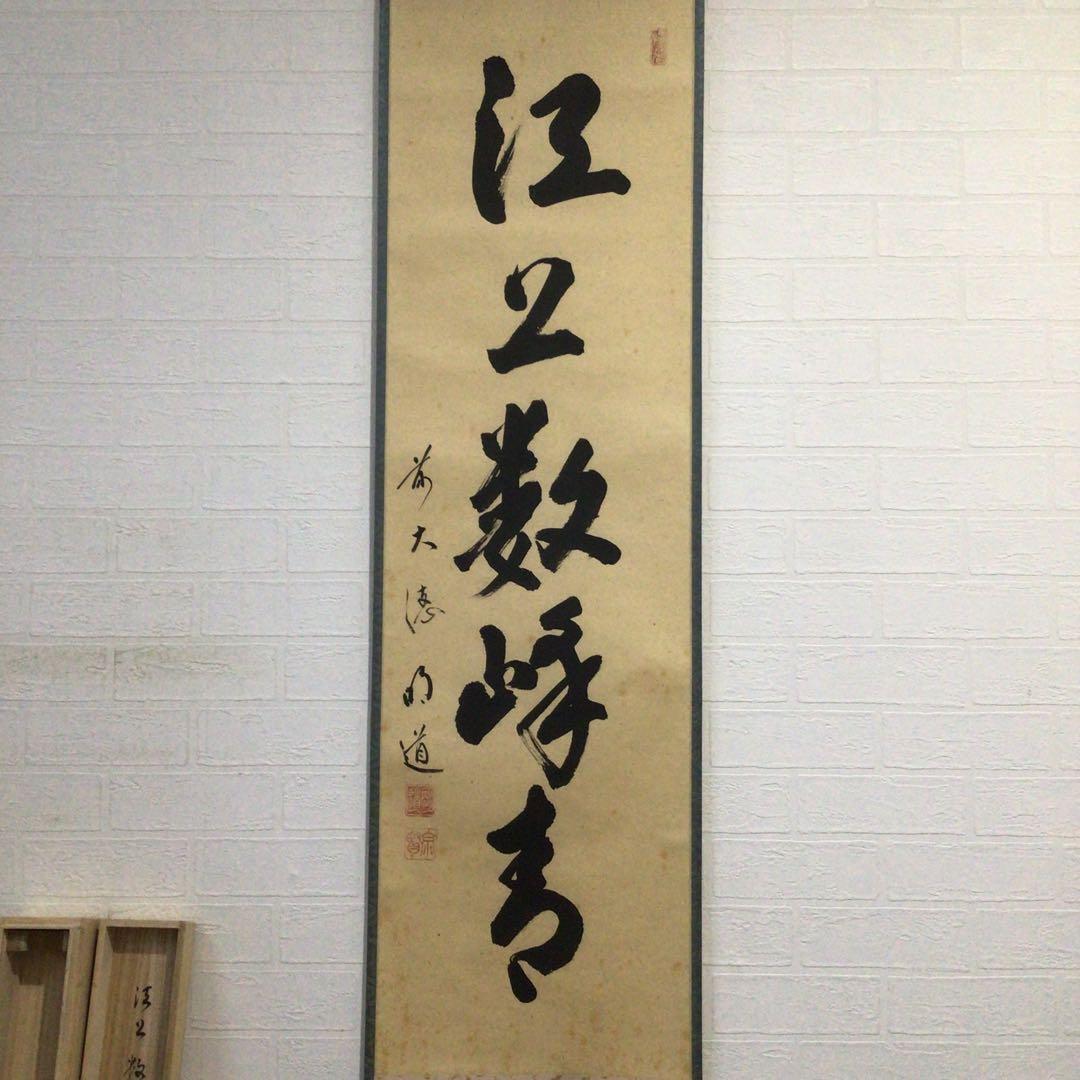 江上数峰青
前大徳明道
江上数